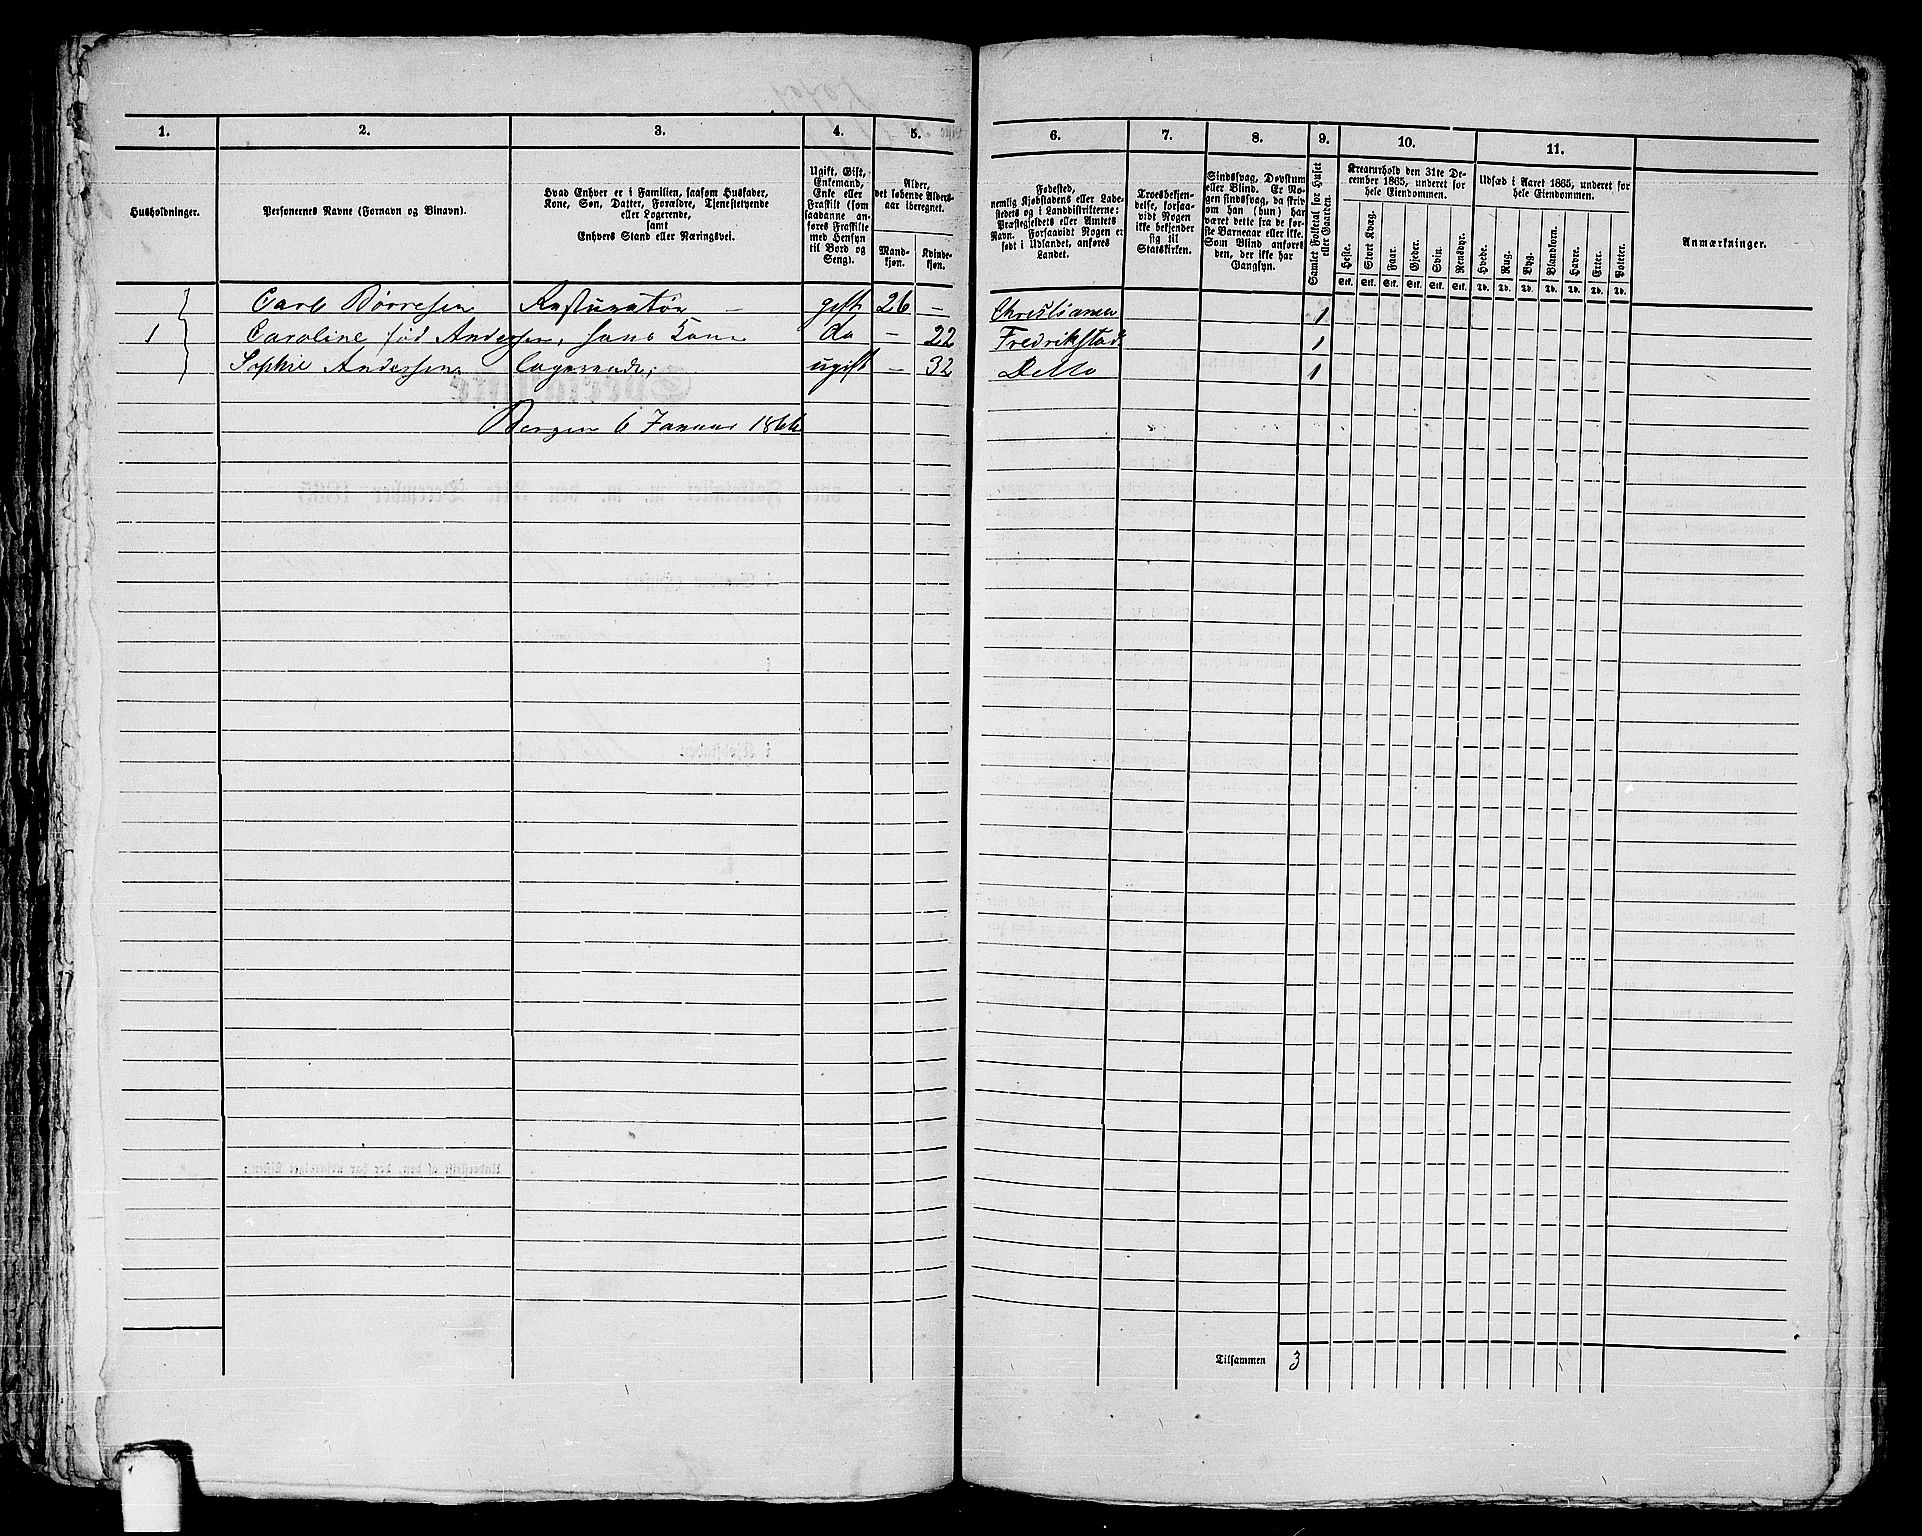 1. 2. 3. 4. 5. 6. 7. 8. 9. 10. 11.
Husholdninger.
Personernes Navne (Fornavn og Binavn).
Hvad Enhver er i Familien, saasom Husfader,
Kone, Søn, Datter, Forældre, Tjenestetyende
eller Logerende,
samt
Enhvers Stand eller Næringsvei.
Ugift, Gift,
Enkemand,
Enke eller
Fraskilt (som
saadanne an-
føres Fraskilte
med Hensyn
til Bord og
Seng).
Alder,
det løbende Alders-
aar iberegnet.
Mand-
kjøn.
Kvinde-
kjøn.
Fødested,
nemlig Kjøbstadens eller Lade-
stedets og i Landdistrikterne:
Præstegjeldets eller Amtets
Navn. Forsaavidt Nogen er
født i Udlandet, anføres
Landet.
Troesbekjen-
delse, forsaa-
vidt Nogen
ikke bekjender
sig til
Statskirken.
Sindssvag, Døvstum
eller Blind. Er No-
gen sindssvag, da skriv
om han (hun) har
været dette fra de før-
ste Barneaar eller ikke.
Som Blind anføres
den, der ikke har
Gangsyn.
Samlet Folketal for Huset
eller Gaarden.
Kreaturhold den 31te De-
cember 1865, underet for
hele Eiendommen.
Heste. Stort Kvæg. Faar. Gjeder. Svin. Rensdyr.
Stk. Stk. Stk. Stk. Stk. Stk.
Udsæd i Aaret 1865, underet for
hele Eiendommen.
Hvede. Rug. Byg. Blandkorn. Havre. Erter. Poteter.
Td. Td. Td. Td. Td. Td. Td.
Anmærkninger.
Carl Børresen Resturatør - gift 26 - Christiania 1
1 Caroline fød Andersen, hans Kone do - 22 Fredrikstad 1
Sophie Andersen logerende; ugift - 32 Detto 1
Bergen 6 Januar 1866
Tilsammen 3